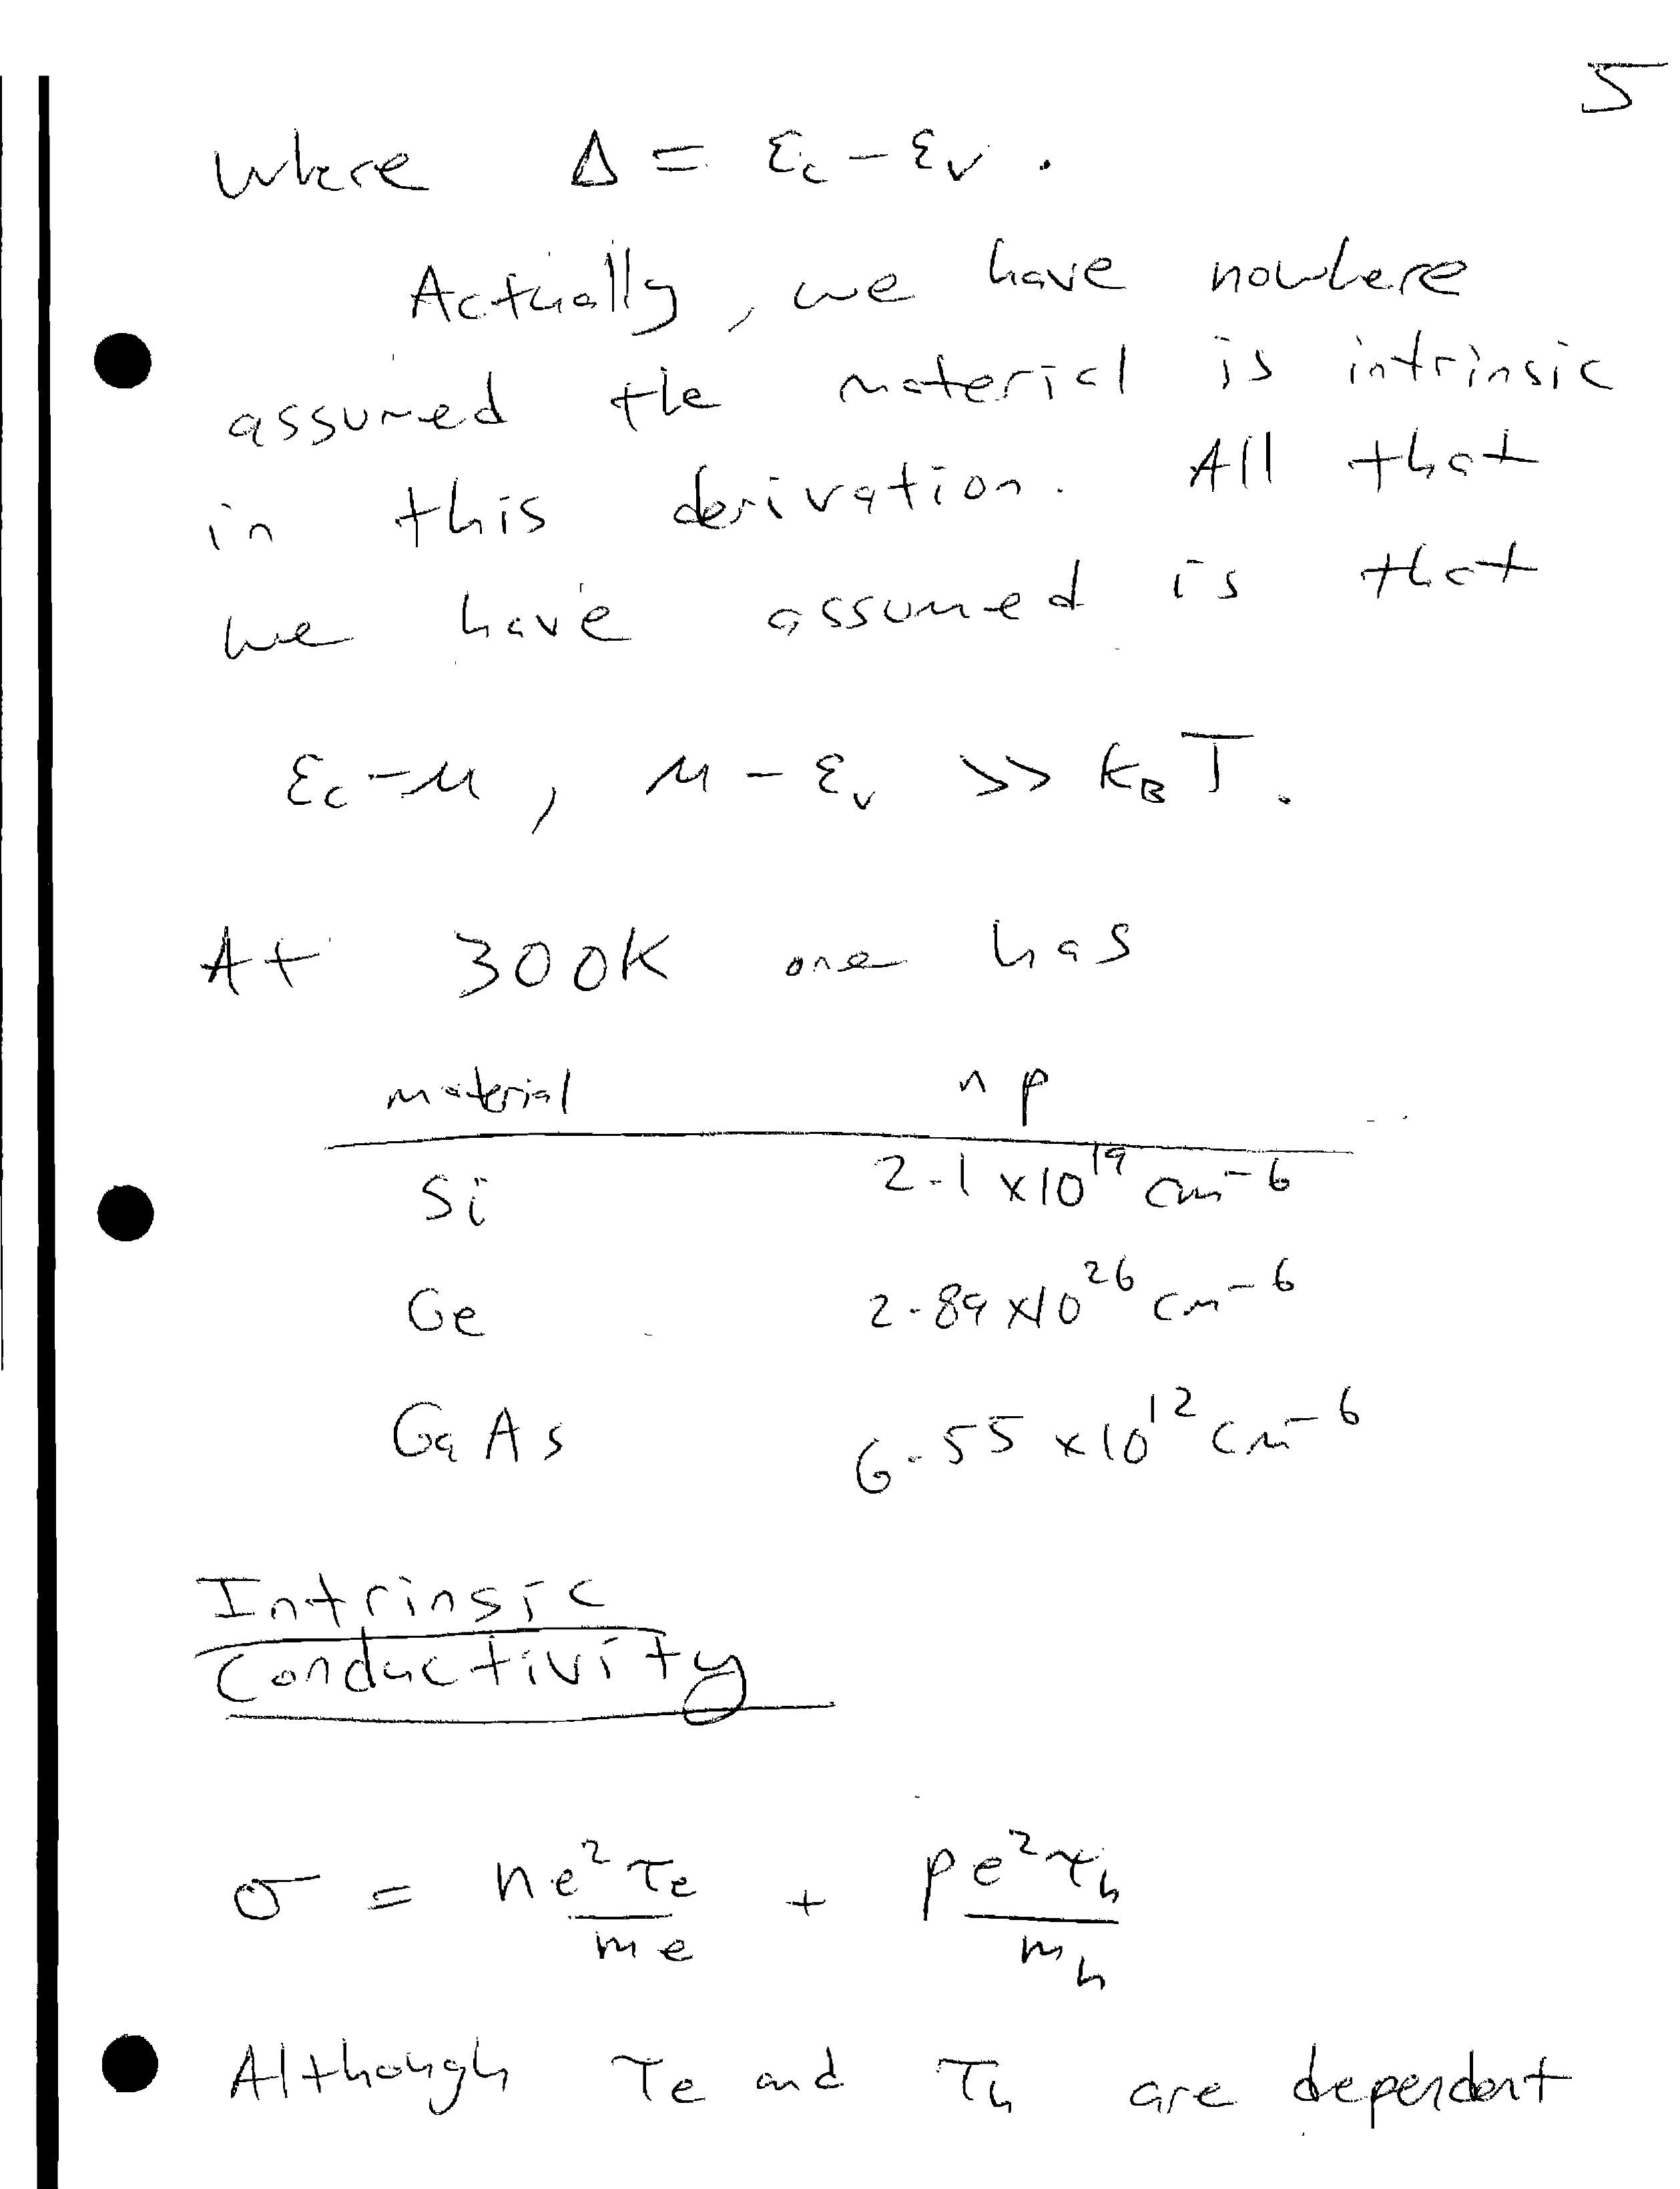 5
where Δ = ε_c − ε_v .
Actually, we have nowhere
assumed the material is intrinsic
in this derivation. All that
we have assumed is that
ε_c − μ , μ − ε_v >> k_B T .
At 300K one has
material n p
Si 2.1 × 10^19 cm^−6
Ge 2.89 × 10^26 cm^−6
GaAs 6.55 × 10^12 cm^−6
Intrinsic
Conductivity
σ = ne²τ_e / m_e + pe²τ_h / m_h
Although τ_e and τ_h are dependent